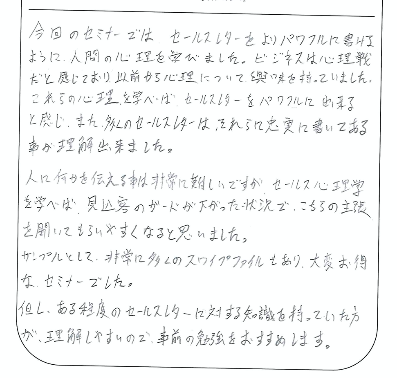 今回のセミナーでは セールスレターをよりパワフルに書ける
ように、人間の心理を学びました。ビジネスは心理戦
だと感じており以前から心理について興味を持っていました。
これらの心理を学べば、セールスレターをパワフルに出来る
と感じ、また、多くのセールスレターは、それらに忠実に書いてある
事が理解出来ました。
人に何かを伝える事は非常に難しいですが、セールス心理学
を学べば、見込客のガードが下がった状況で、こちらの主張
を聞いてもらいやすくなると思いました。
サンプルとして、非常に多くのスワイプファイルもあり、大変お得
な、セミナーでした。
但し、ある程度のセールスレターに対する知識を持っていた方
が、理解しやすいので、事前の勉強をおすすめします。